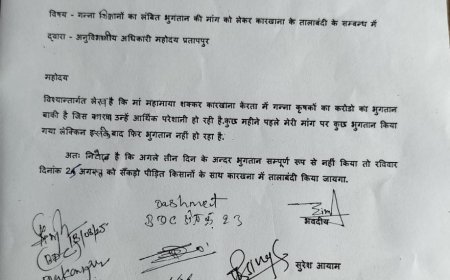 विषय - गन्ना किसानों का लंबित भुगतान की मांग को लेकर कारखाना के तालाबंदी के सम्बन्ध में
द्वारा - अनुविभागीय अधिकारी महोदय प्रतापपुर
महोदय
विषयान्तर्गत लेख है कि मां महामाया शक्कर कारखाना केरता में गन्ना कृषकों का करोडो का भुगतान
बाकी है जिस कारण उन्हें आर्थिक परेशानी हो रही है.कुछ महीने पहले मेरी मांग पर कुछ भुगतान किया
गया लेकिन इसके बाद फिर भुगतान नहीं हो रहा है.
अतः निवेदन है कि अगले तीन दिन के अन्दर भुगतान सम्पूर्ण रूप से नहीं किया तो रविवार
दिनांक 24 अगस्त को सैंकड़ो पीड़ित किसानों के साथ कारखाना में तालाबंदी किया जायगा.
Dashmeet
BDC 23
भवदीय
सुरेश आयाम